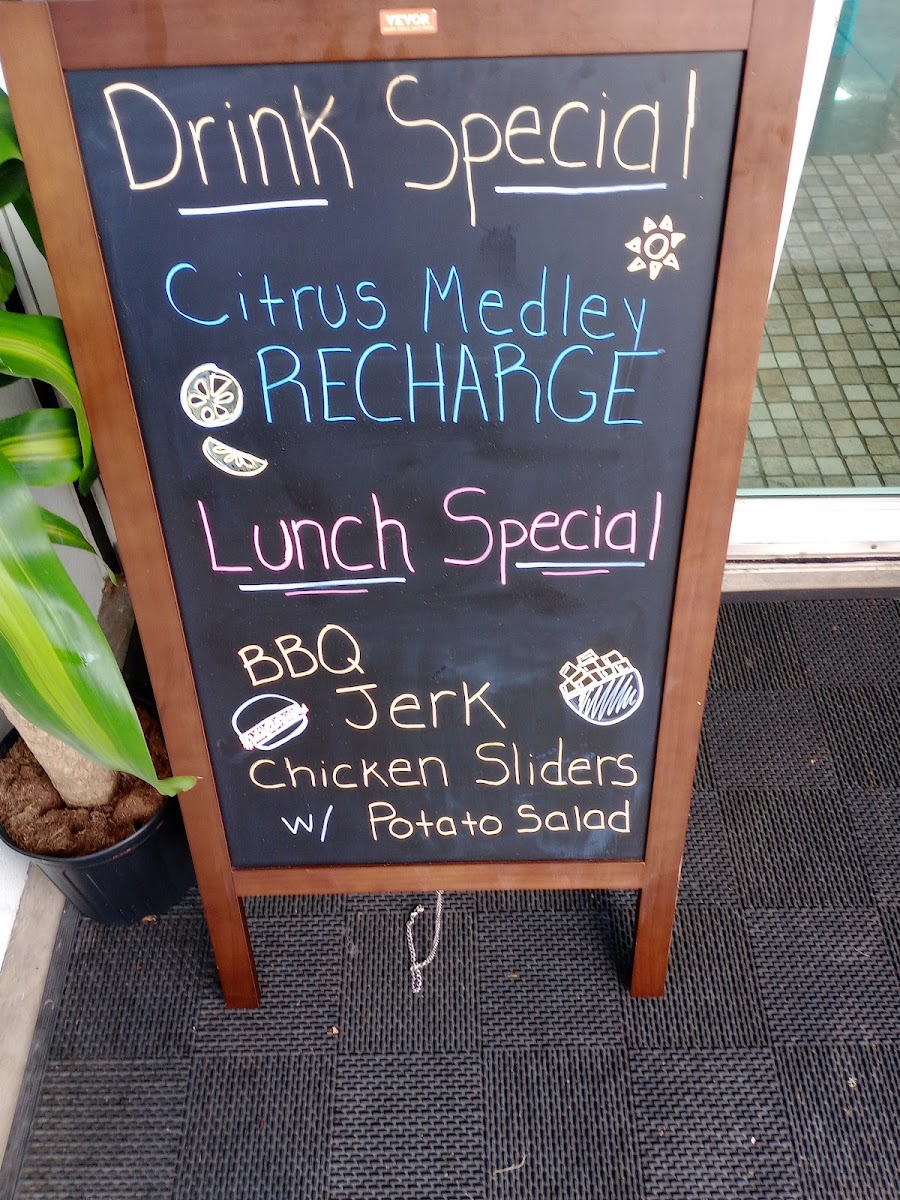 VEVOR
Drink Special
Citrus Medley
RECHARGE
Lunch Special
BBQ
Jerk
Chicken Sliders
w/ Potato Salad